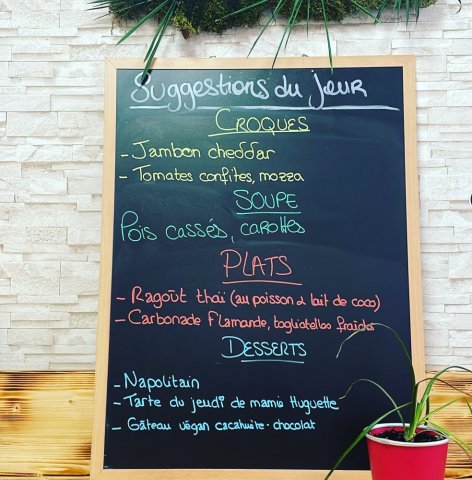 Suggestions du jour
CROQUES
- Jambon cheddar
- Tomates confites, mozza
SOUPE
Pois cassés, carottes
PLATS
- Ragoût thaï (au poisson & lait de coco)
- Carbonade flamande, tagliatelles fraîches
DESSERTS
- Napolitain
- Tarte du jeudi de mamie Huguette
- Gâteau végan cacahuète - chocolat